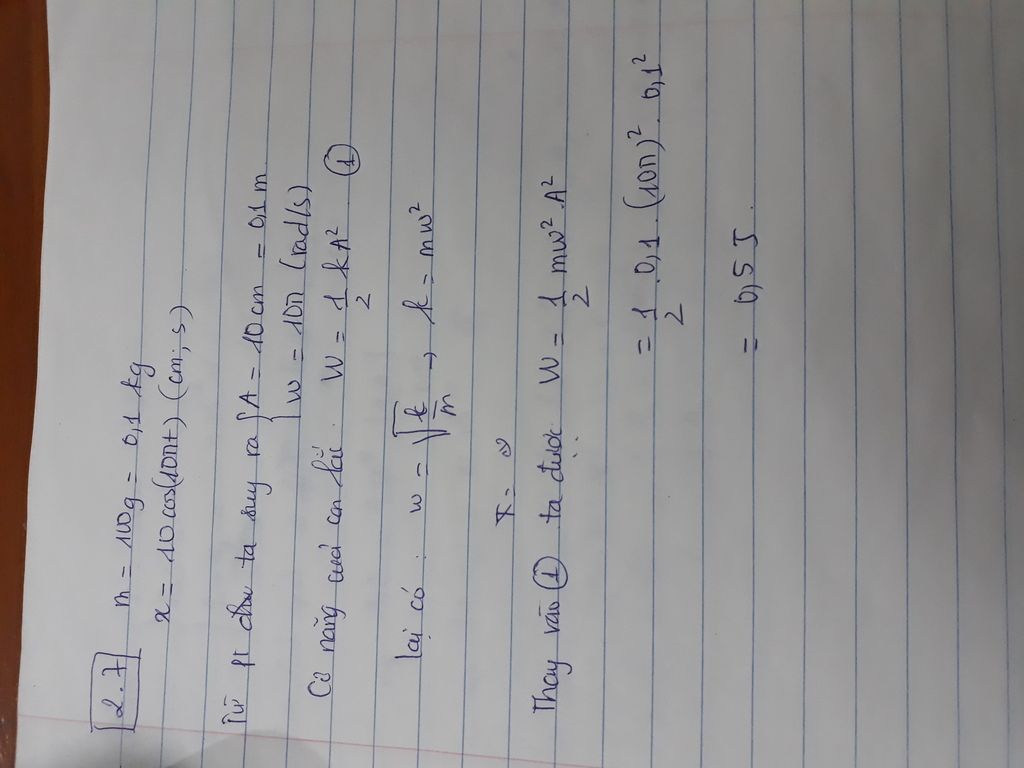 2.7 m = 100g = 0,1 kg
x = 10cos(10πt) (cm; s)
Từ pt đầu ta suy ra { A = 10cm = 0,1m
w = 10π (rad/s)
Cơ năng của con lắc: W = 1/2 kA² ①
Lại có: w = √(k/m) → k = mw²
Thay vào ① ta được W = 1/2 mw².A²
= 1/2 . 0,1 . (10π)² . 0,1²
= 0,5 J.